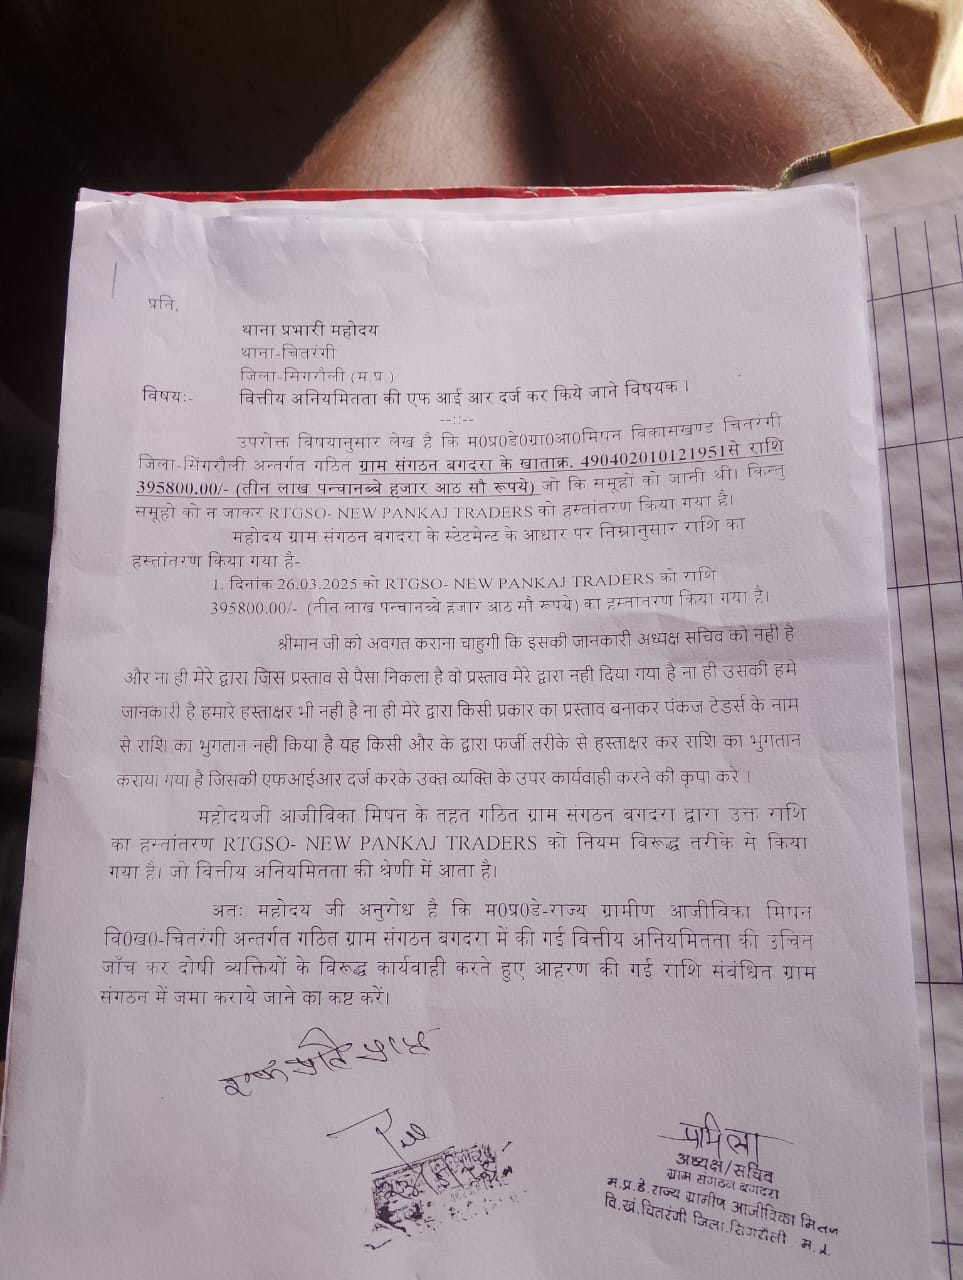 प्रति,
थाना प्रभारी महोदय
थाना-चितरंगी
जिला-सिगरौली (म.प्र.)
विषयः- वित्तीय अनियमितता की एफ आई आर दर्ज कर किये जाने विषयक ।
--::--
उपरोक्त विषयानुसार लेख है कि म0प्र0डे0ग्रा0आ0मिषन विकासखण्ड चितरंगी
जिला-सिंगरौली अन्तर्गत गठित ग्राम संगठन बगदरा के खाताक्र. 490402010121951से राशि
395800.00/- (तीन लाख पन्चानब्बे हजार आठ सौ रूपये) जो कि समूहो को जानी थी। किन्तु
समूहो को न जाकर RTGSO- NEW PANKAJ TRADERS को हस्तांतरण किया गया है।
महोदय ग्राम संगठन बगदरा के स्टेटमेन्ट के आधार पर निम्नानुसार राशि का
हस्तांतरण किया गया है-
1. दिनांक 26.03.2025 को RTGSO- NEW PANKAJ TRADERS को राशि
395800.00/- (तीन लाख पन्चानब्बे हजार आठ सौ रूपये) का हस्तांतरण किया गया है।
श्रीमान जी को अवगत कराना चाहुगी कि इसकी जानकारी अध्यक्ष सचिव को नही है
और ना ही मेरे द्वारा जिस प्रस्ताव से पैसा निकला है वो प्रस्ताव मेरे द्वारा नही दिया गया है ना ही उसकी हमे
जानकारी है हमारे हस्ताक्षर भी नही है ना ही मेरे द्वारा किसी प्रकार का प्रस्ताव बनाकर पंकज टेडर्स के नाम
से राशि का भुगतान नही किया है यह किसी और के द्वारा फर्जी तरीके से हस्ताक्षर कर राशि का भुगतान
कराया गया है जिसकी एफआईआर दर्ज करके उक्त व्यक्ति के उपर कार्यवाही करने की कृपा करे ।
महोदयजी आजीविका मिषन के तहत गठित ग्राम संगठन बगदरा द्वारा उक्त राशि
का हस्तांतरण RTGSO- NEW PANKAJ TRADERS को नियम विरूद्ध तरीके से किया
गया है। जो वित्तीय अनियमितता की श्रेणी में आता है।
अतः महोदय जी अनुरोध है कि म0प्र0डे-राज्य ग्रामीण आजीविका मिषन
वि0ख0-चितरंगी अन्तर्गत गठित ग्राम संगठन बगदरा में की गई वित्तीय अनियमितता की उचित
जाँच कर दोषी व्यक्तियों के विरूद्ध कार्यवाही करते हुए आहरण की गई राशि संबंधित ग्राम
संगठन में जमा कराये जाने का कष्ट करें।
प्रामिला
अध्यक्ष/सचिव
ग्राम संगठन बगदरा
म.प्र.डे. राज्य ग्रामीण आजीविका मिशन
वि.खं.चितरंगी जिला.सिगरौली म.प्र.